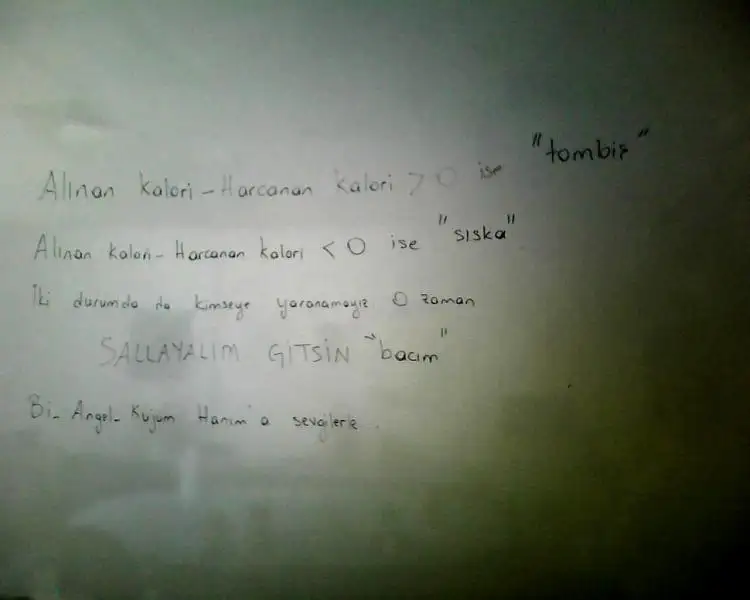 Alınan kalori - Harcanan kalori > 0 ise "tombiş"
Alınan kalori - Harcanan kalori < 0 ise "sıska"
İki durumda da kimseye yaranamayız O zaman
SALLAYALIM GİTSİN "bacım"
Bi- Angel- Kujum Hanım'a sevgilerle.